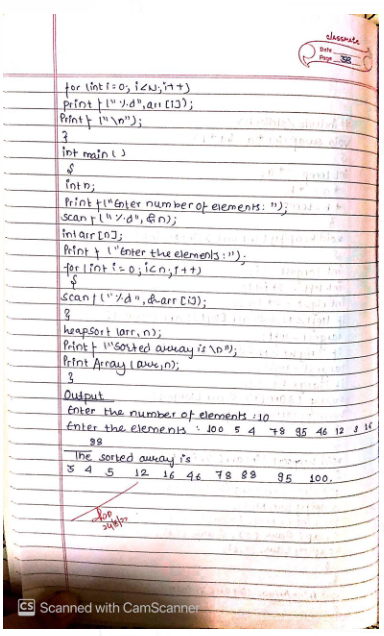 classmate
Date
Page 58
for (int i=0; i<N; i++)
printf ("%d", arr [i]);
Printf ("\n");
}
int main ( )
{
int n;
Printf ("Enter number of elements: ");
scanf ("%d", &n);
int arr [n];
Printf ("Enter the elements:");
for (int i=0; i<n; i++)
{
scanf ("%d", &arr [i]);
}
heapsort (arr, n);
Printf ("Sorted array is \n");
Print Array (arr, n);
}
Output
Enter the number of elements : 10
Enter the elements : 100 5 4 78 95 46 12 3 16
88
The sorted array is
3 4 5 12 16 46 78 88 95 100.
CS Scanned with CamScanner